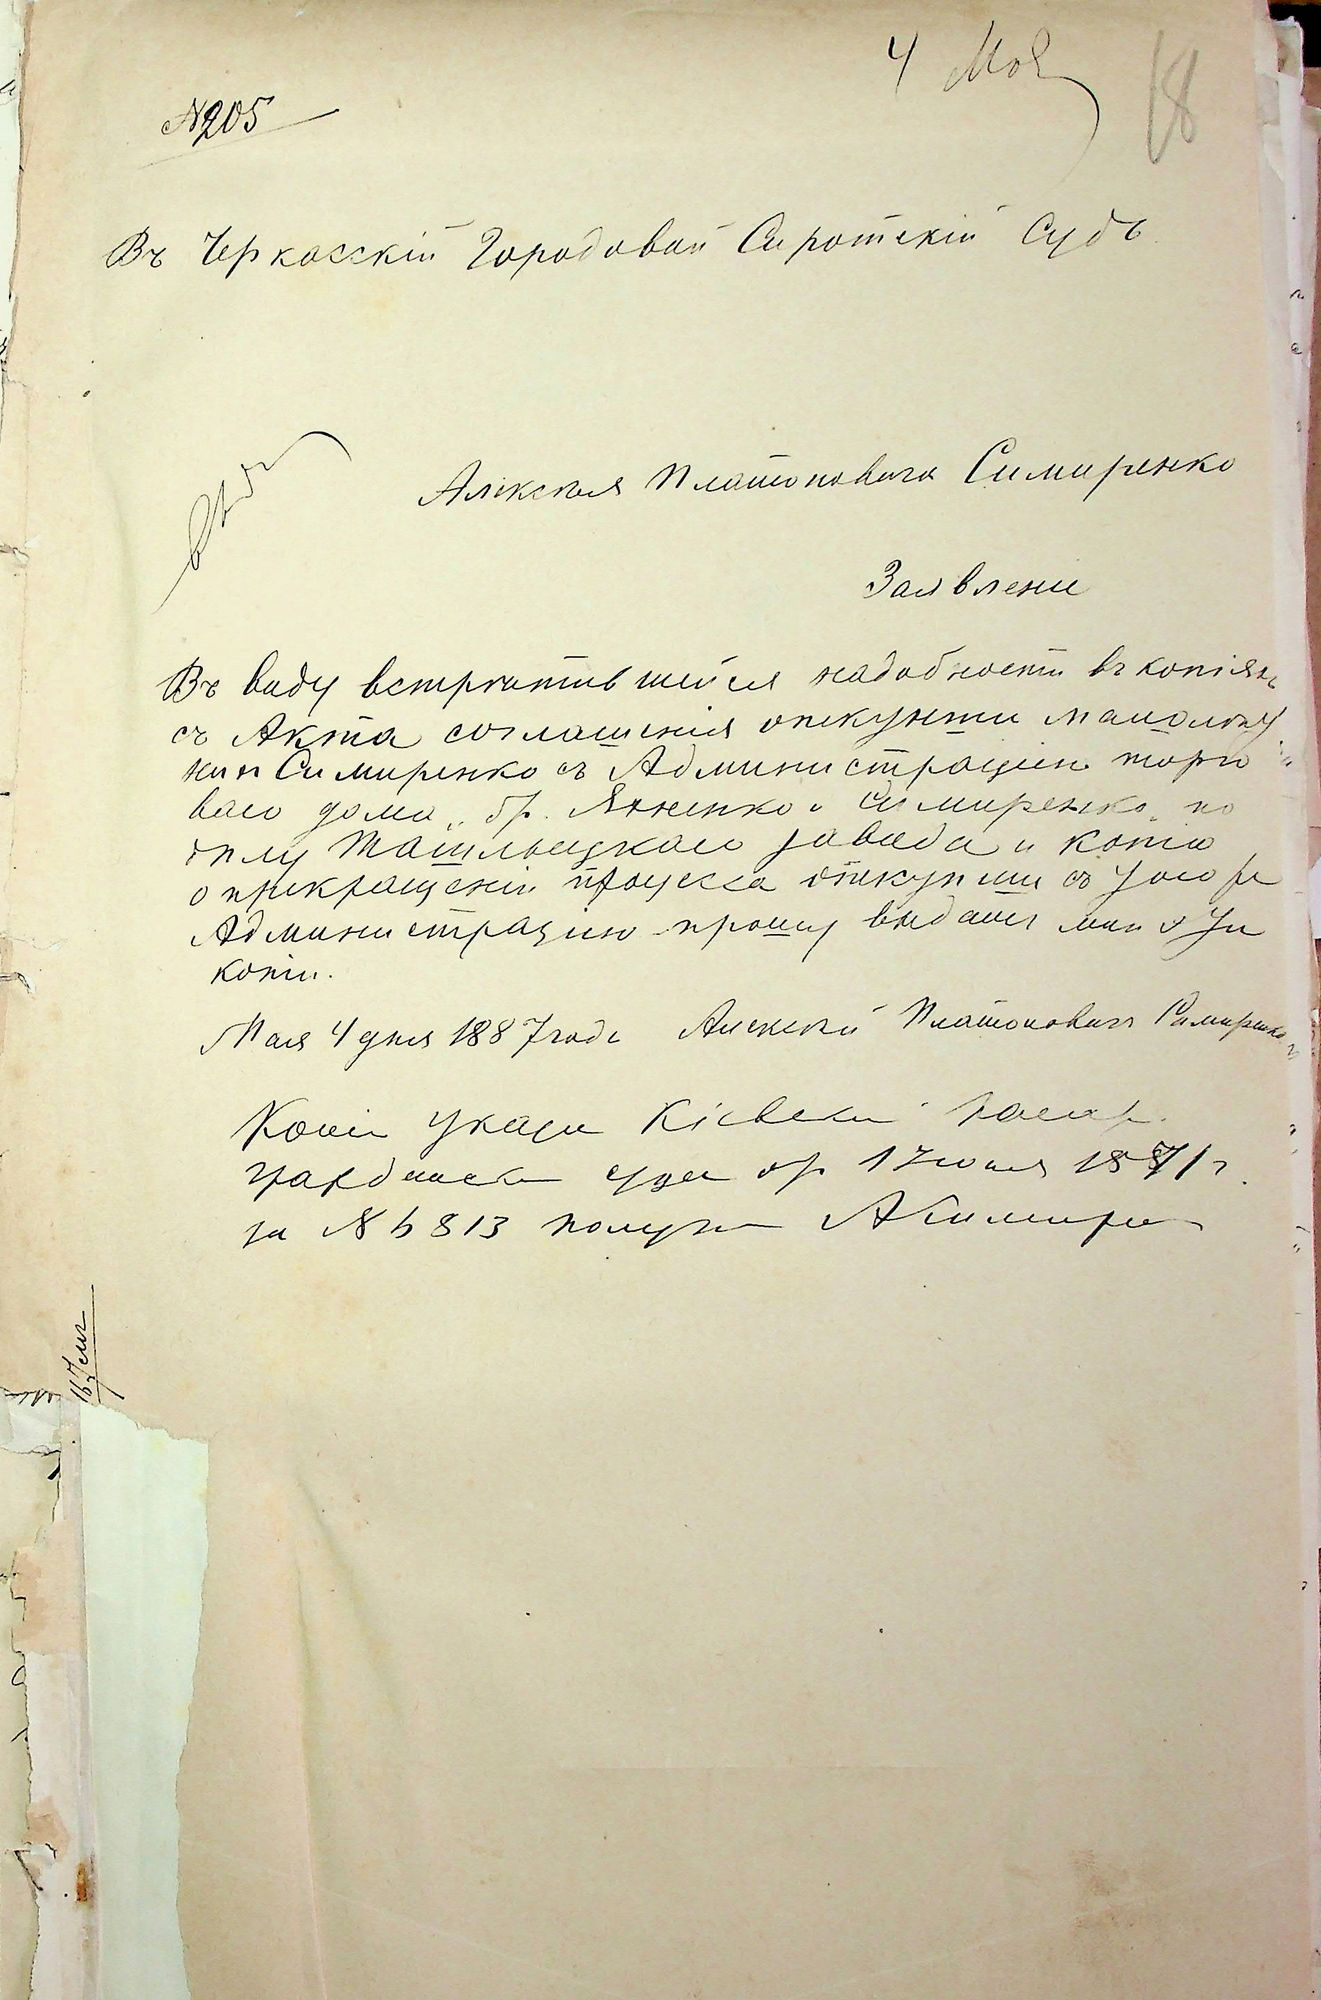 4 Мая
18
№205
Въ Черкасскій Городовой Сиротскій Судъ
Алексѣя Платоновича Симиренко
Заявление
Въ виду встретившейся надобности въ копіяхъ
съ Акта соглашенія опекунши малолѣт
нихъ Симиренко съ Администраціею торго
ваго дома „бр. Яхненко и Симиренко" по
делу Ташлыцкаго завода и копію
о прекращеніи процесса опекунши съ
Администраціею прошу выдать мнѣ
копіи.
Мая 4 дня 1887 года Алексѣй Платоновичъ Симиренко
Копію указа Кіевской
суда 17 1871 г.
за № 6813 А Симирен